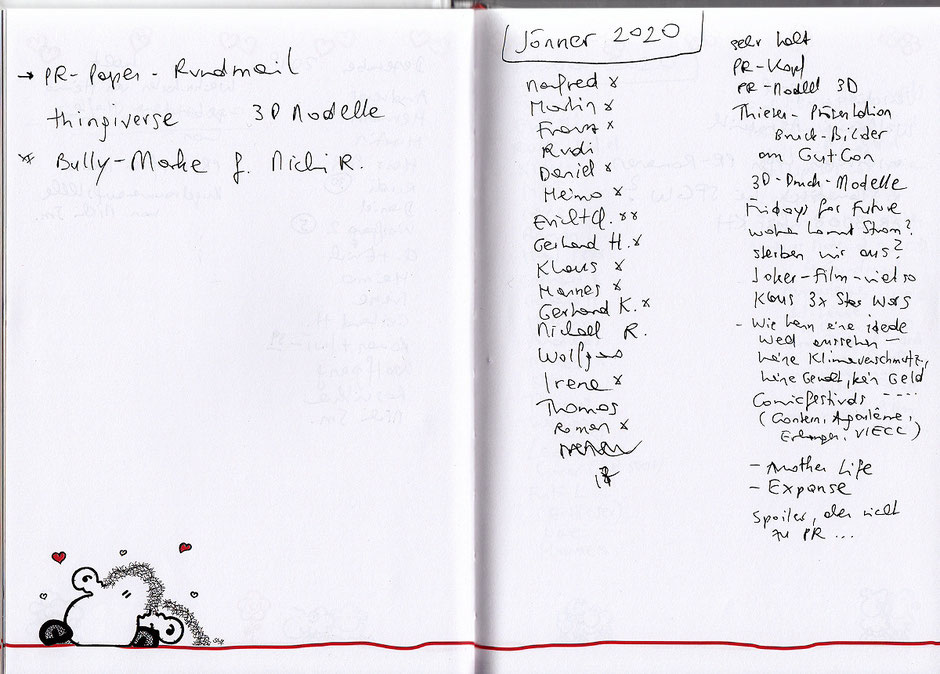 → PR-Paper-Rundmail
thingiverse 3D Modelle
** Bully-Marke f. Michi R.
Jänner 2020
Manfred x
Martin x
Franz x
Rudi
Daniel x
Heimo x
Erich+Q. **
Gerhard H. x
Klaus x
Hannes x
Gerhard K. x
Michael R.
Wolfgang
Irene x
Thomas
Roman x
sehr kalt
PR-Kopf
PR-Modell 3D
Thieser-Präsentation
Brück-Bilder
am GutCon
3D-Druck-Modelle
Fridays for Future
woher kommt Strom?
sterben wir aus?
Joker-Film-
Klaus 3x Star Wars
- Wie kann eine ideale
Welt aussehen -
keine Klimaverschmutz.,
keine Gewalt, kein Geld
Comicfestivals ----
(Contern, Angoulême,
Erlangen, VIECC)
- Another Life
- Expanse
Spoiler, aber nicht
zu PR ...